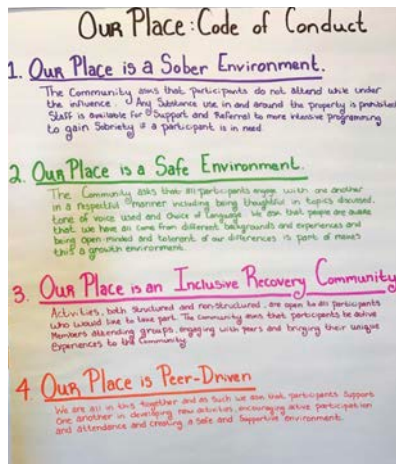 Our Place: Code of Conduct
1. Our Place is a Sober Environment.
The Community asks that participants do not attend while under
the influence. Any Substance use in and around the property is prohibited
Staff is available for Support and Referral to more intensive programming
to gain Sobriety if a participant is in need.
2. Our Place is a Safe Environment.
The Community asks that all participants engage with one another
in a respectful manner including being thoughtful in topics discussed,
tone of voice used and choice of language. We ask that people are aware
that we have all come from different backgrounds and experiences and
being open-minded and tolerant of our differences is part of makes
this a growth environment.
3. Our Place is an Inclusive Recovery Community
Activities, both structured and non-structured, are open to all participants
who would like to take part. The Community asks that participants be active
Members attending groups, engaging with peers and bringing their unique
Experiences to the Community.
4 Our Place is Peer-Driven
We are all in this together and as such we ask that participants Support
One another in developing new activities, encouraging active participation
and attendance and creating a safe and Supportive environment.